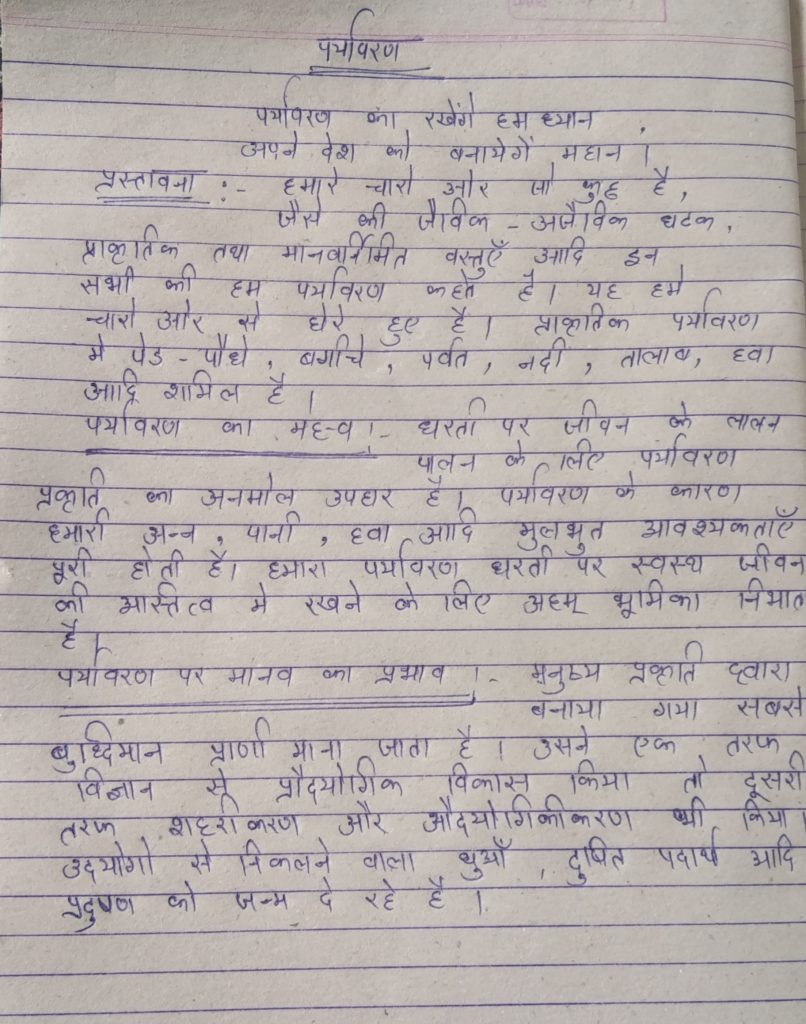 पर्यावरण
पर्यावरण का रखेंगे हम ध्यान ,
अपने देश को बनायेगें महान ।
प्रस्तावना :- हमारे चारो ओर जो कुछ है ,
जैसे की जैविक - अजैविक घटक ,
प्राकृतिक तथा मानवनिर्मित वस्तुएँ आदि इन
सभी को हम पर्यावरण कहते है । यह हमे
चारो ओर से घेरे हुए है । प्राकृतिक पर्यावरण
मे पेड - पौधे , बगीचे , पर्वत , नदी , तालाब , हवा
आदि शामिल है ।
पर्यावरण का महत्व ।- धरती पर जीवन के लालन
पालन के लिए पर्यावरण
प्रकृति का अनमोल उपहार है । पर्यावरण के कारण
हमारी अन्न , पानी , हवा आदि मुलभुत आवश्यकताएँ
पूरी होती है । हमारा पर्यावरण धरती पर स्वस्थ जीवन
को आस्तित्व मे रखने के लिए अहम् भूमिका निभात
है ।
पर्यावरण पर मानव का प्रभाव ।- मनुष्य प्रकृति द्वारा
बनाया गया सबसे
बुध्दिमान प्राणी माना जाता है । उसने एक तरफ
विज्ञान से प्रौदयोगिक विकास किया तो दूसरी
तरफ शहरीकरण और औदयोगिकीकरण भी किया ।
उदयोगो से निकलने वाला धुआँ , दुषित पदार्थ आदि
प्रदुषण को जन्म दे रहे है ।